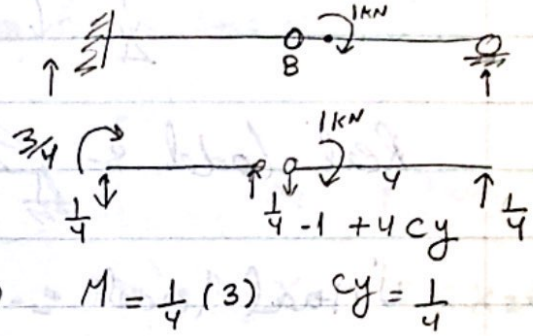 1KN
B
3/4
1KN
4
1/4
1/4
1/4
-1 + 4 Cy
M = 1/4 (3) Cy = 1/4